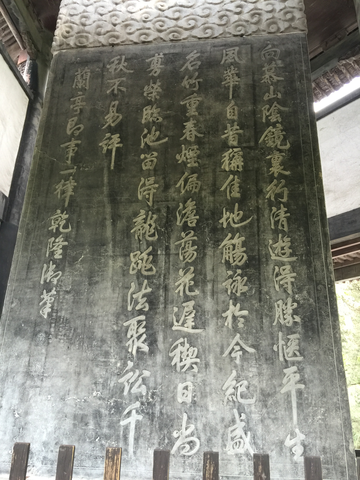 向慕山陰鏡裏行清遊得勝愜平生
風華自昔稱佳地觴詠於今紀盛
名竹重春烟偏澹蕩花遲禊日尚
敷榮臨池留得龍跳法聚訟千
秋不易評
蘭亭即事一律乾隆御筆